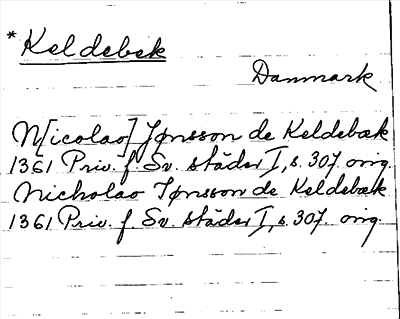 *Keldebek
Danmark
N[icolao] Jønsson de Keldebæk
1361 Priv. f. Sv. städer I, s. 307. orig.
Nicholao Jønsson de Keldebæk
1361 Priv. f. Sv. städer I, s. 307. orig.